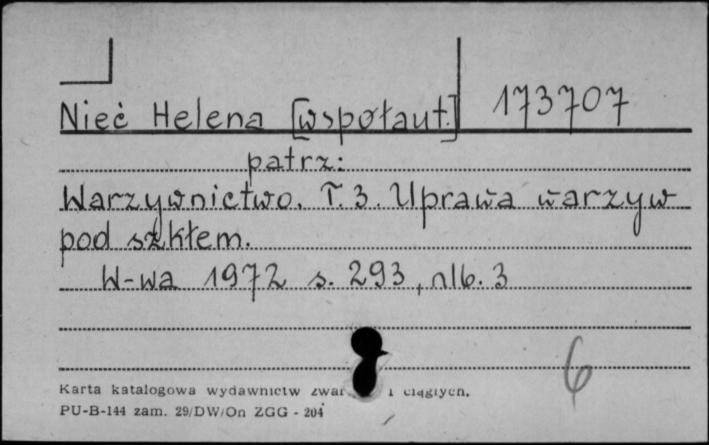 Nieć Helena [współaut.] 173707
patrz:
Warzywnictwo. T. 3. Uprawa warzyw
pod szkłem.
W-wa 1972 s. 293, nlb. 3
6
Karta katalogowa wydawnictw i ciągłych.
PU-B-144 zam. 29/DW/On ZGG - 204